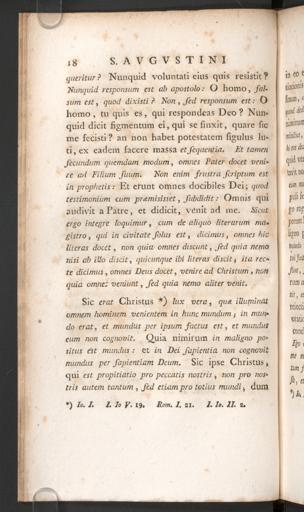 18 S. AVGVSTINI
queritur? Nunquid voluntati eius quis resistit?
Nunquid responsum est ab apostolo: O homo, fal-
sum est, quod dixisti? Non, sed responsum est: O
homo, tu quis es, qui respondeas Deo? Nun-
quid dicit figmentum ei, qui se finxit, quare sic
me fecisti? an non habet potestatem figulus lu-
ti, ex eadem facere massa et sequentia. Et tamen
secundum quemdam modum, omnes Pater docet veni-
re ad Filium suum. Non enim frustra scriptum est
in prophetis: Et erunt omnes docibiles Dei; quod
testimonium cum præmisisset, subdidit: Omnis qui
audivit a Patre, et didicit, venit ad me. Sicut
ergo integre loquimur, cum de aliquo literarum ma-
gistro, qui in civitate solus est, dicimus, omnes hic
literas docet, non quia omnes discunt, sed quia nemo
nisi ab illo discit, quicunque ibi literas discit, ita rec-
te dicimus, omnes Deus docet, venire ad Christum, non
quia omnes veniunt, sed quia nemo aliter venit.
Sic erat Christus *) lux vera, quæ illuminat
omnem hominem venientem in hunc mundum, in mun-
do erat, et mundus per ipsum factus est, et mundus
eum non cognovit. Quia nimirum in maligno po-
situs est mundus: et in Dei sapientia non cognovit
mundus per sapientiam Deum. Sic ipse Christus,
qui est propitiatio pro peccatis nostris, non pro nos-
tris autem tantum, sed etiam pro totius mundi, dum
*) Io. I. I. Io V. 19. Rom. I. 21. I. Io. II. 2.